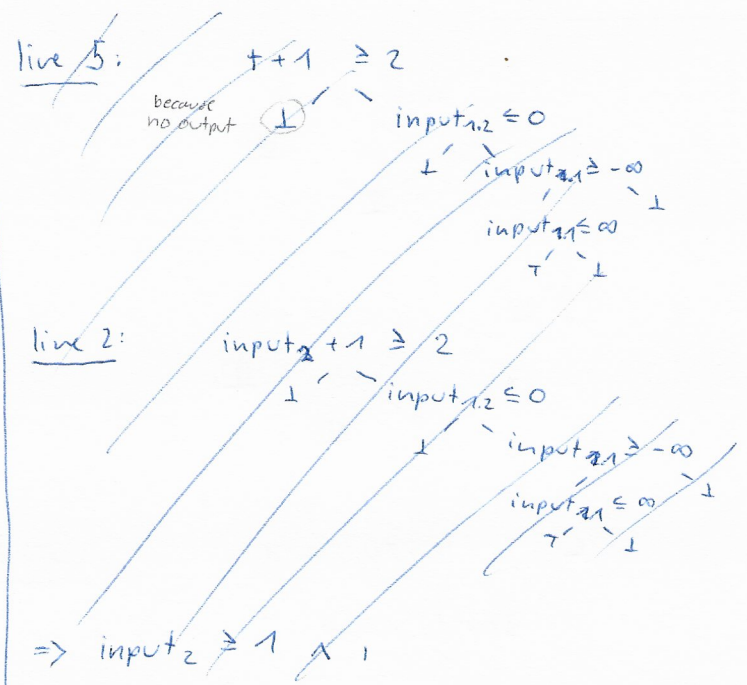 line 5: t + 1 ≥ 2
because
no output ⊥ input1.2 ≤ 0
⊥ input1.1 ≥ -∞
⊥
input1.1 ≤ ∞
⊤ ⊥
line 2: input2 + 1 ≥ 2
⊥ input1.2 ≤ 0
⊥ input1.1 ≥ -∞
⊥
input1.1 ≤ ∞
⊤ ⊥
=> input2 ≥ 1 ∧